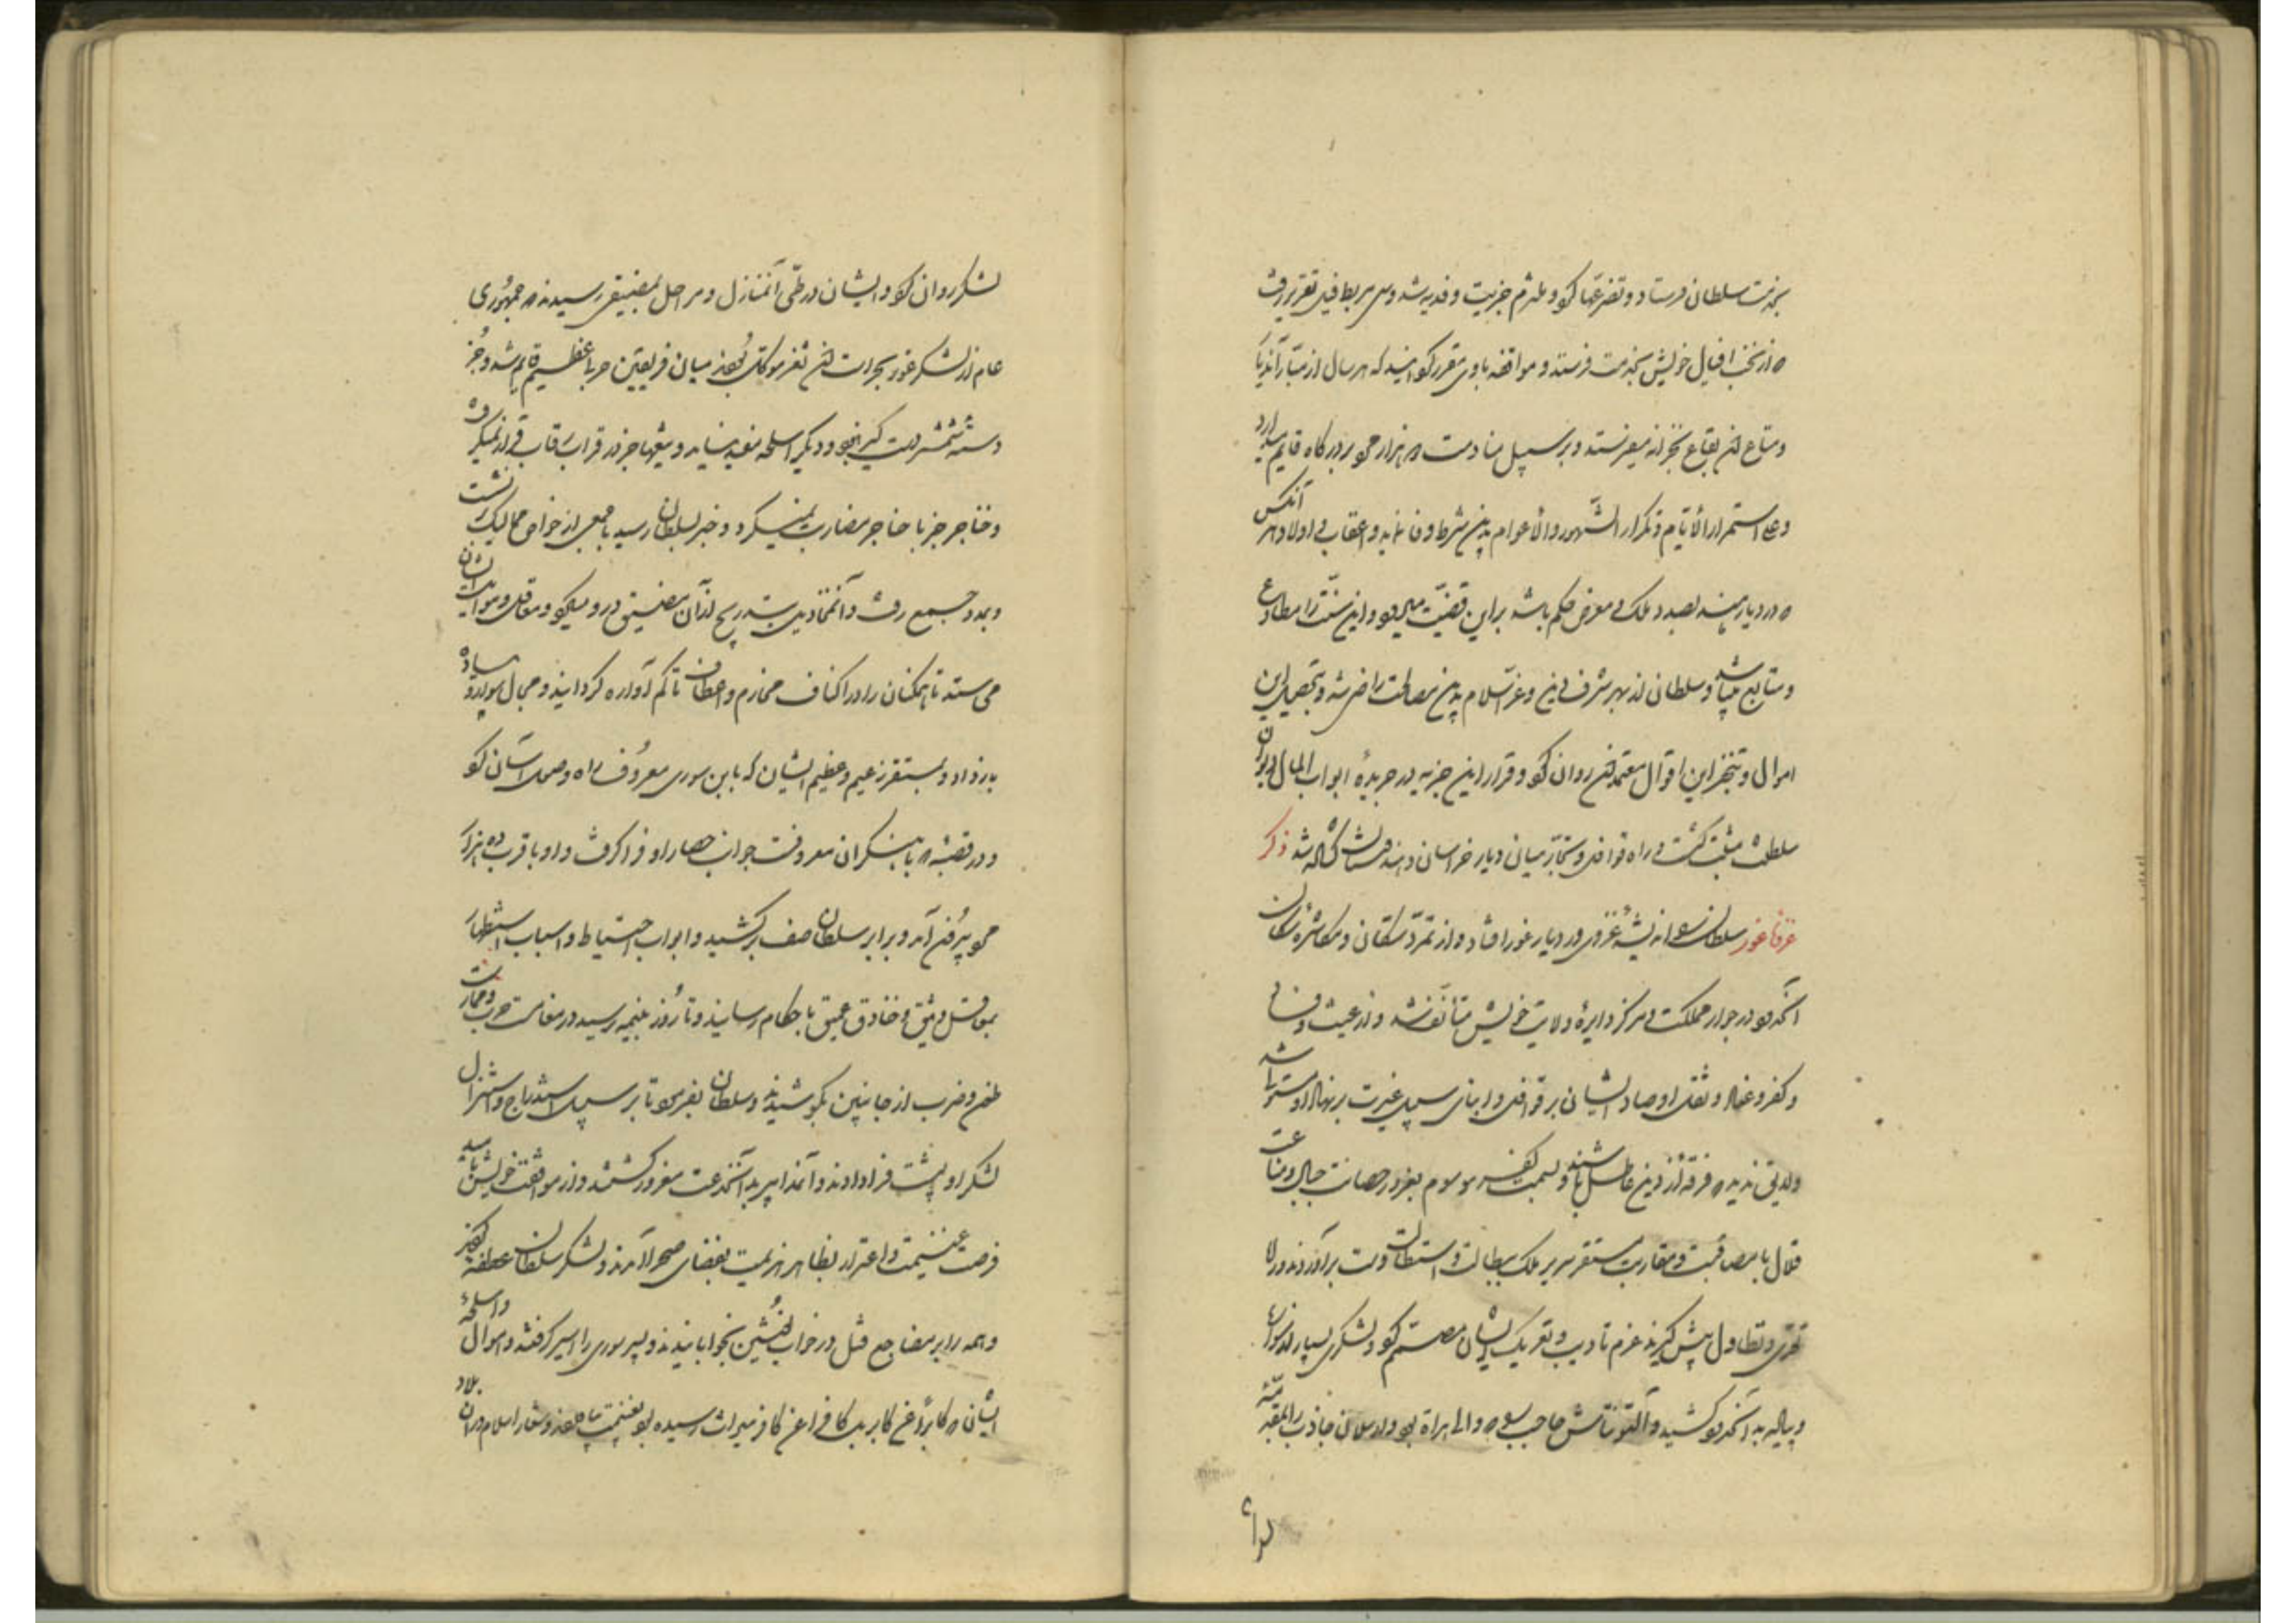 بخدمت سلطان فرستاد و تضرعها کرد و ملتزم جزیت و فدیه شد وسی مربط فیل تقریر رفت
که از نخب افیال خویش بخدمت فرستد و مواقفه باوی مقرر گردانید که هر سال از مبارّ آن دیار
و متاع آن بقاع بخزانه میفرستد و بر سبیل مناوبت دو هزار مرد بر درگاه قایم میدارد
و علی استمرار الأیّام و تکرار الشّهور و الأعوام بدین شرط وفا نماید و اعقاب و اولاد و هر آنکس
که در دیار هند بصدد ملک و معرض حکم باشد براین قضیّت میرود و این سنّت را مطاوع
و متابع میباشد و سلطان از بهر شرف دین و عزّ اسلام بدین مصالحت راضی شد و بتحصیل این
اموال و تنجّز این اقوال معتمدان روان کرد و قرار این جزیه در جریدهٔ ابواب المال و دیوان
سلطنت مثبت گشت و راه قوافل و تجّار میان دیار خراسان و هند گشاده شد ذکر
غزوهٔ غور سلطان را اندیشهٔ غزو در دیار غور افتاد و از تمرّد سکّان و مکاشرهٔ
آنکه در جوار مملکت و مرکز دایرهٔ ولایت خویش متأنّف شد و از عیث و فساد
و کفر و عناد و ثقل اوصاد ایشان بر قوافل و ابنای سبیل غیرت بر نهاد او مستولی شد
و لایق ندید که فرقهٔ از دین عاطل باشند و بسمت کفر موسوم بغرور حصانت جبال و مناعت
قلال با مصاقبت و مقاربت مستقر سریر ملک بسالت و استطالت دست برآورند و راه
تعدّی و تطاول پیش گیرند عزم تأدیب و تعریک ایشان مصمّم کرد و لشکری بسیار از سوار
و پیاده بدانحدود کشید و آلتونتاش حاجب که والی هراة بود و ارسلان جاذب را بمقدّمهٔ
لشکر روان کرد و ایشان در طیّ آن منازل و مراحل بمضیقی رسیدند که جمهوری
عام از لشکر غور بحراست آن ثغر موکّل بودند میان فریقین حربی عظیم قایم شد و جز
دسته شمشیر دست گیر نبود و دیگر اسلحه مفید نیامد و تیغها جز در قراب رقاب قرار نمیگرفت
و خناجر جز با حناجر مضاربت نمیکرد و خبر بسلطان رسید با جمعی از خواص ممالیک برنشست
و بمدد جمع رفت و آن متمادیان را بتدریج از آن مضیق دور میکرد و معاقل و مواضع ایشان
می ستد تا همگنان را در اکناف مخارم و اعطاف آکام آواره گردانید و مجال سوار و پیاده
باز داد و بمستقر زعیم و عظیم ایشان که بابن سوری معروف راه وصول آسان کرد
و در قصبهٔ که باهنگران معروفست جوانب حصار او فرا گرفت و او با قرب ده هزار
مرد بیرون آمد و برابر سلطان صف برکشید و ابواب احتیاط و اسباب استظهار
بمعاقل وثیق و خنادق عمیق باحکام رسانید و تا روز بنیمه رسید در مقامت حرب و ممارست
طعن و ضرب از جانبین بکوشیدند و سلطان بفرمود تا بر سبیل استدراج و استنزال
لشکر او پشت فرا دادند و آن مخاذیل بدان خدعت مغرور گشتند و از مواقف خویش بامید
فرصت غنیمت و اغترار بظاهر هزیمت بفضای صحرا آمدند و لشکر سلطان عطفه کردند
و همه را بر مضاجع قتل در خواب خوش بخوابانیدند و پسر سوری را اسیر گرفتند و اموال و اسلحهٔ
ایشان که کابراً عن کابر بل کافراً عن کافر میراث رسیده بود غنیمت یافتند و شعار اسلام در آن بلاد